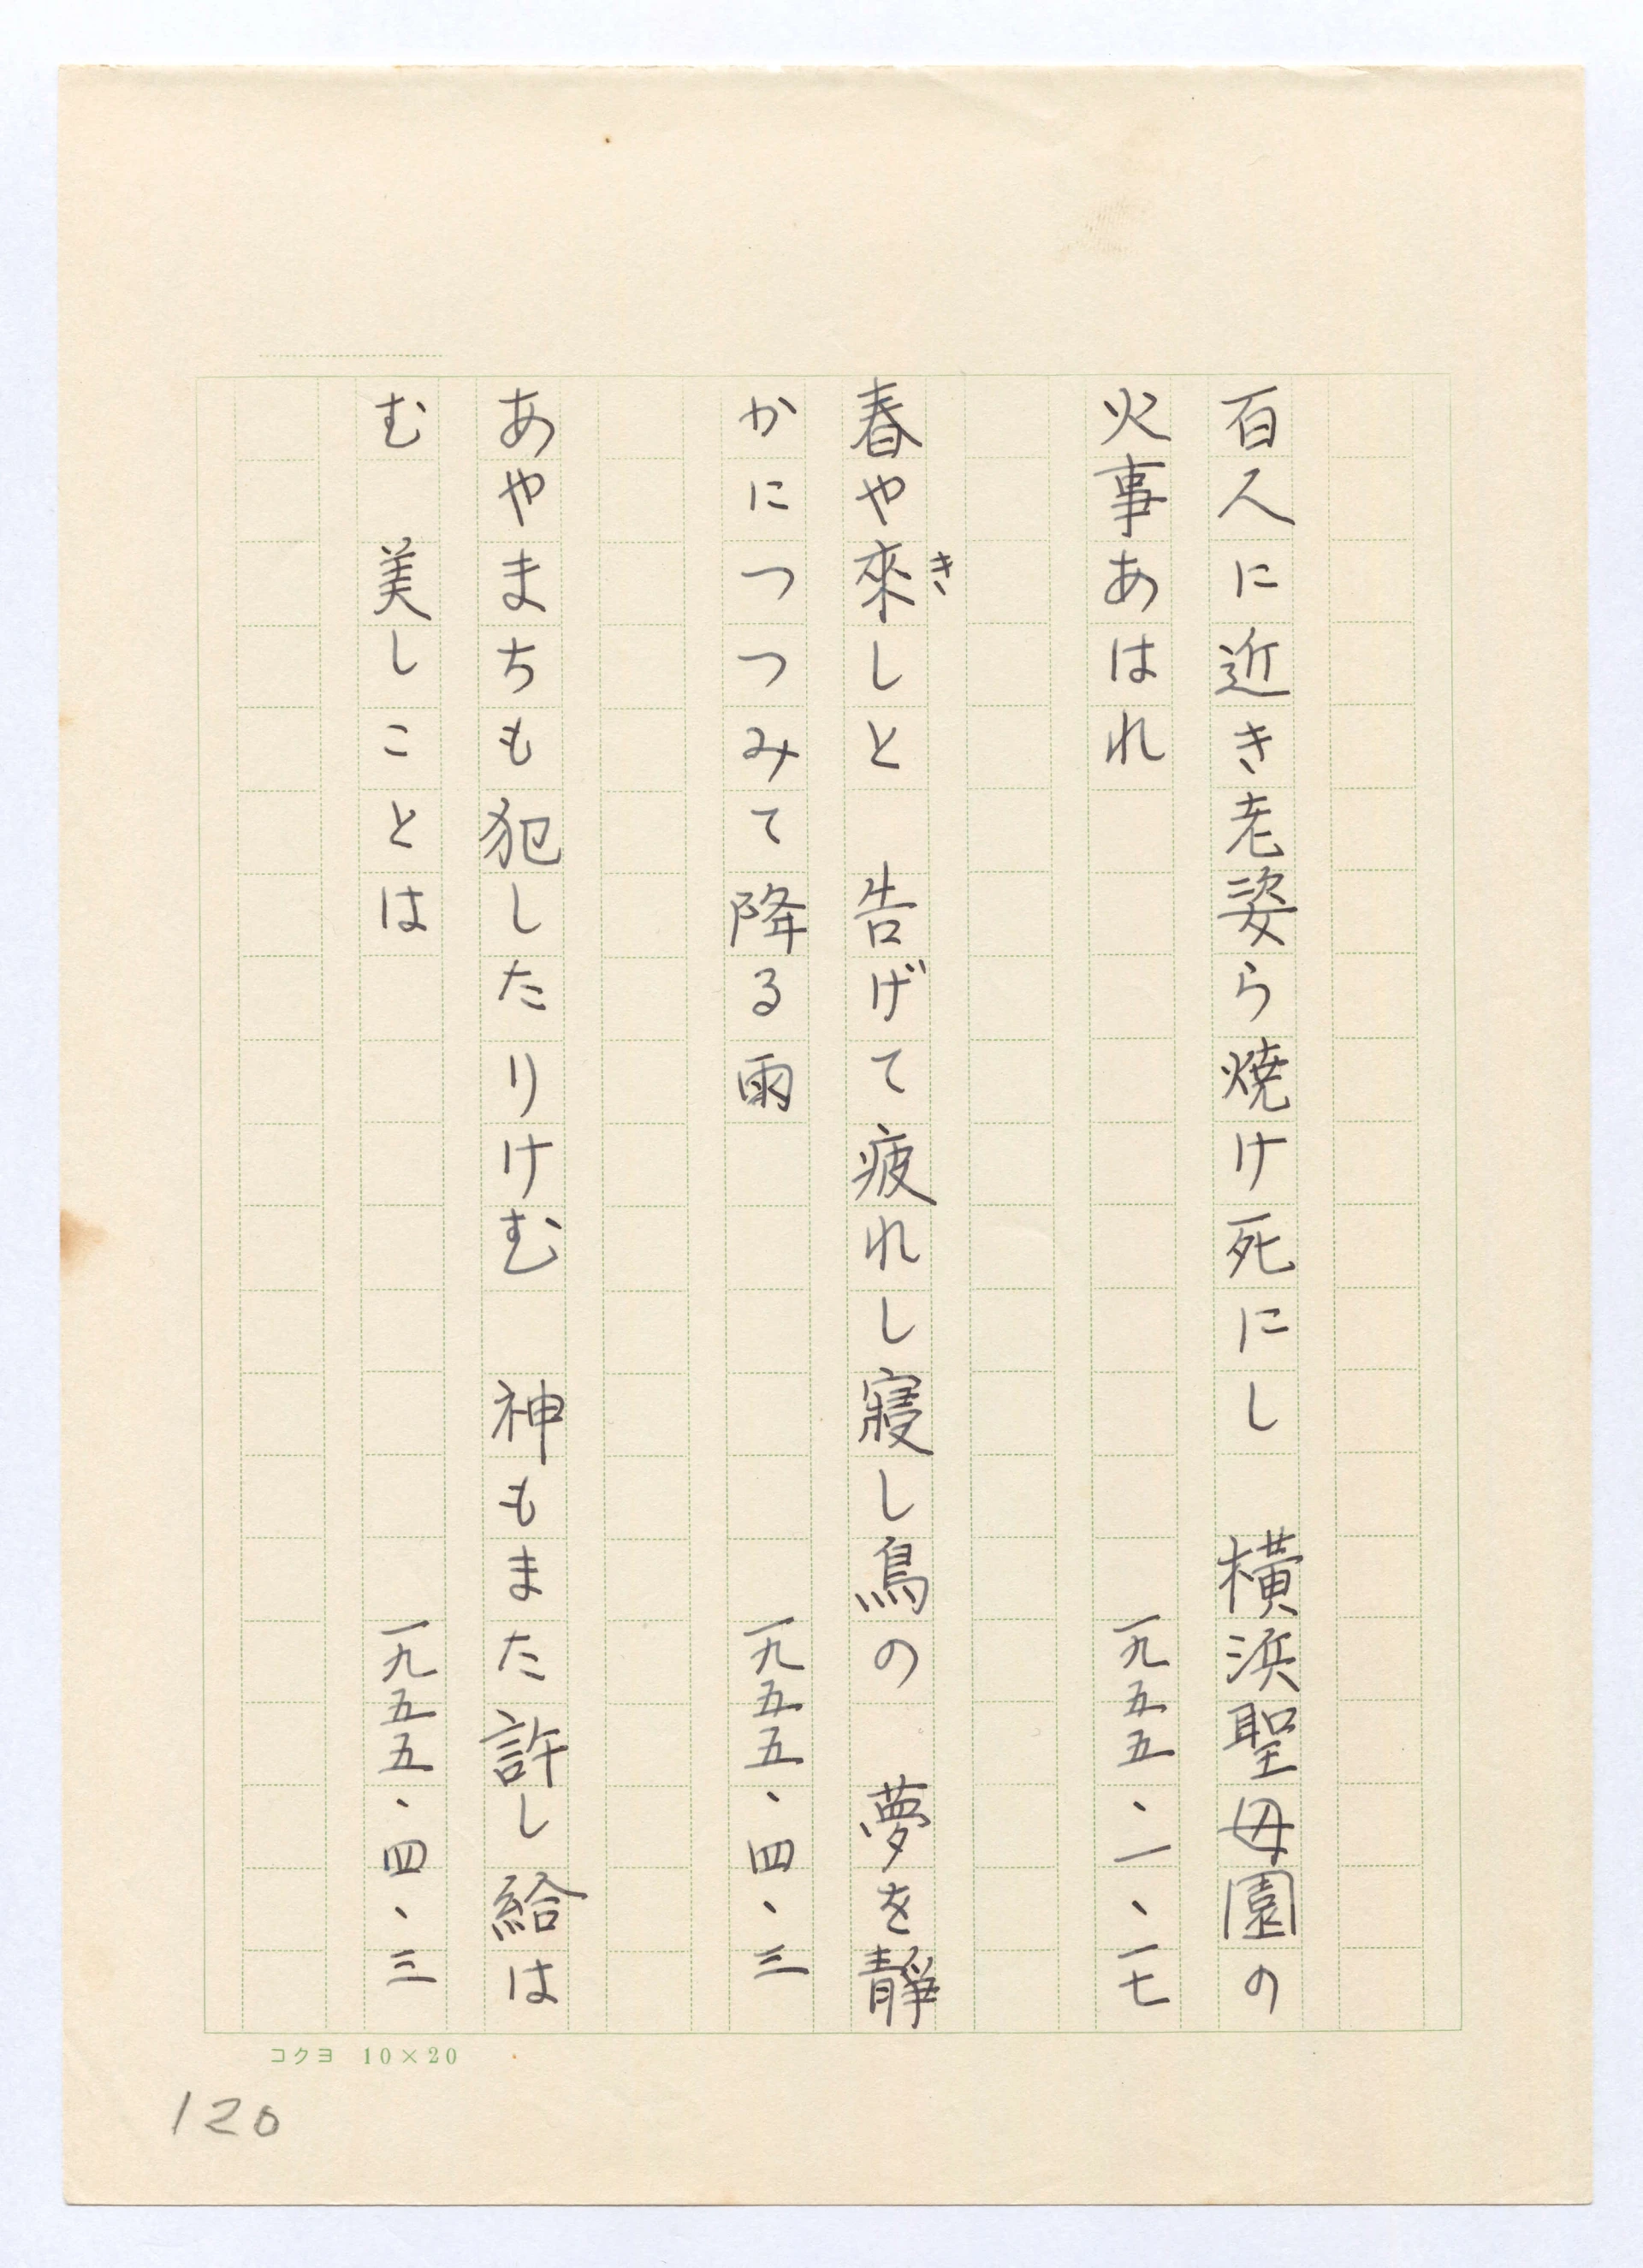 百人に近き老姿ら焼け死にし　横浜聖母園の
火事あはれ　一九五五、一、一七
春や來しと　告げて疲れし寢し鳥の　夢を靜
き
かにつつみて降る雨　一九五五、四、三
あやまちも犯したりけむ　神もまた許し給は
む　美しことは　一九五五、四、三
コクヨ 10×20
120